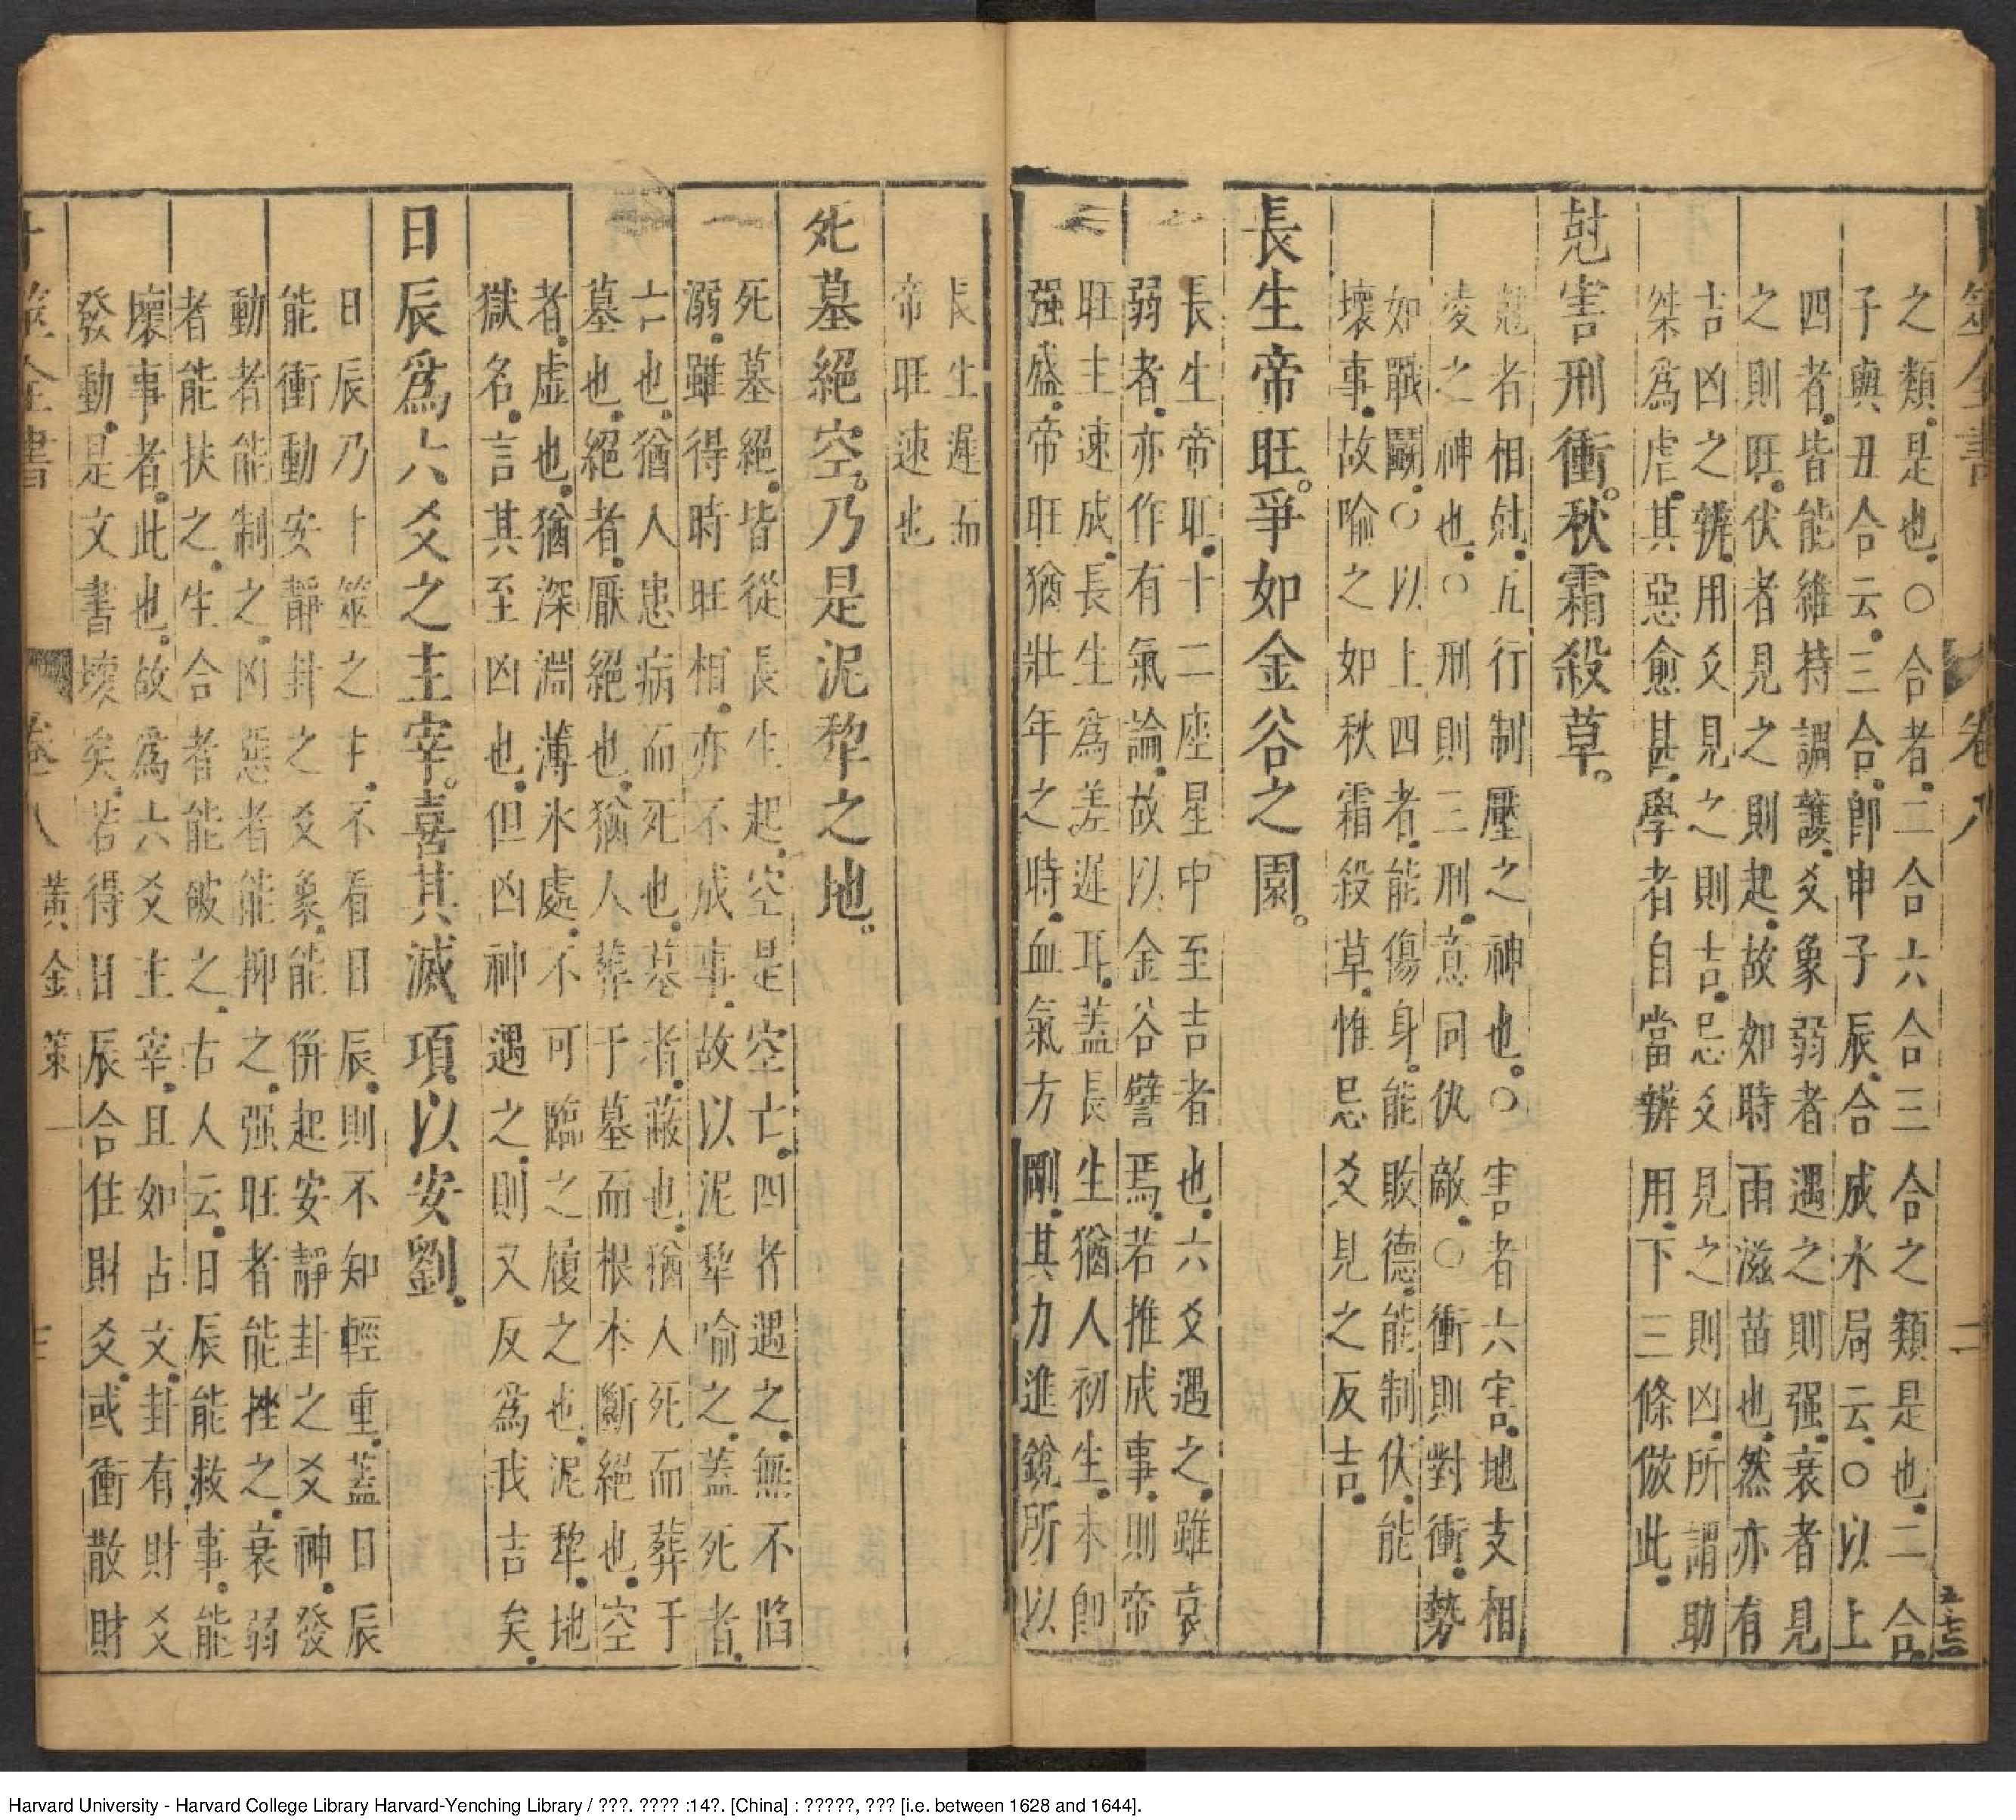 之類是也○合者二合六合三合之類是也二合
子與丑合云三合卽申子辰合成水局云○以上
四者皆能維持謂護爻象弱者遇之則强衰者見
之則旺伏者見之則起故如時雨滋苗也然亦有
吉凶之辨用爻見之則吉忌爻見之則凶所謂助
桀爲虐其惡愈甚學者自當辨用下三條倣此
尅害刑衝秋霜殺草
尅者相尅五行制壓之神也○害者六害地支相
凌之神也○刑則三刑意同仇敵○衝則對衝勢
如戰鬭○以上四者能傷身能敗德能制伏能
壞事故喻之如秋霜殺草惟忌爻見之反吉
長生帝旺爭如金谷之園
長生帝旺十二座星中至吉者也六爻遇之雖衰
弱者亦作有氣論故以金谷譬焉若推成事則帝
旺主速成長生爲差遲耳蓋長生猶人初生未卽
强盛帝旺猶壯年之時血氣方剛其力進銳所以
長生遲而
帝旺速也
死墓絕空乃是泥犂之地
死墓絕皆從長生起空是空亡四者遇之無不陷
溺雖得時旺相亦不成事故以泥犂喻之蓋死者
亡也猶人患病而死也墓者蔽也猶人死而葬于
墓也絕者厭絕也猶人葬于墓而根本斷絕也空
者虛也猶深淵薄氷處不可臨之履之也泥犂地
獄名言其至凶也但凶神遇之則又反爲我吉矣
日辰爲六爻之主宰喜其滅項以安劉
日辰乃卜筮之主不看日辰則不知輕重蓋日辰
能衝動安靜卦之爻象能併起安靜卦之爻神發
動者能制之凶惡者能抑之强旺者能挫之衰弱
者能扶之生合者能破之古人云日辰能救事能
壞事者此也故爲六爻主宰且如占文卦有財爻
發動是文書壞矣若得日辰合住財爻或衝散財
卜筮全書
卷八
黃金策一